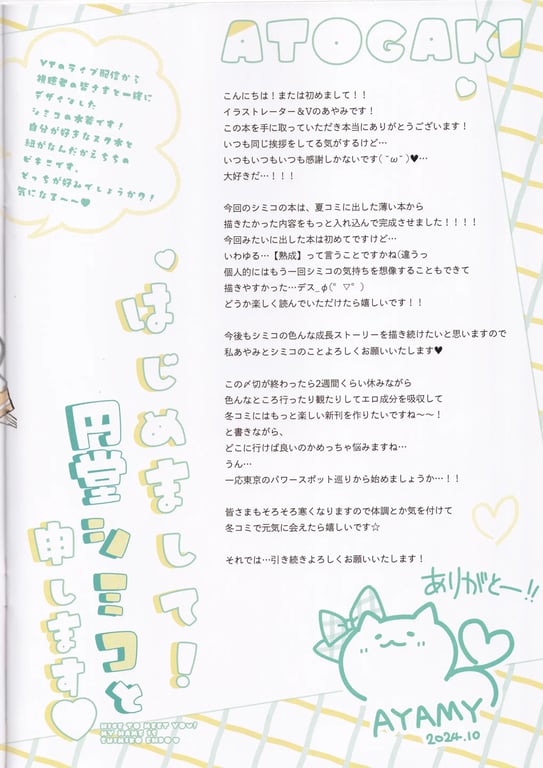 ATOGAKI
VTのライブ配信から
視聴者の皆さまと一緒に
デザインした
シミコの水着です!
自分が好きなスク水と
紐がなんだかえちちの
ビキニです。
どっちが好みでしょうかク!
気になる〜〜♥
こんにちは!または初めまして!!
イラストレーター&Vのあやみです!
この本を手に取っていただき本当にありがとうございます!
いつも同じ挨拶をしてる気がするけど…
いつもいつもいつも感謝しかないです(˘ω˘)♥…
大好きだ…!!!
今回のシミコの本は、夏コミに出した薄い本から
描きたかった内容をもっと入れ込んで完成させました!!!!
今回みたいに出した本は初めてですけど…
いわゆる…【熟成】って言うことですかね(違うっ
個人的にはもう一回シミコの気持ちを想像することもできて
描きやすかった…デス_φ(゜▽゜)
どうか楽しく読んでいただけたら嬉しいです!!
今後もシミコの色んな成長ストーリーを描き続けたいと思いますので
私あやみとシミコのことよろしくお願いいたします♥
この〆切が終わったら2週間くらい休みながら
色んなところ行ったり観たりしてエロ成分を吸収して
冬コミにはもっと楽しい新刊を作りたいですね〜〜!
と書きながら、
どこに行けば良いのかめっちゃ悩みますね…
うん…
一応東京のパワースポット巡りから始めましょうか…!!
皆さまもそろそろ寒くなりますので体調とか気を付けて
冬コミで元気に会えたら嬉しいです☆
それでは…引き続きよろしくお願いいたします!
はじめまして!
円堂シミコと
申します♡
NICE TO MEET YOU!
MY NAME IS
SHIMIKO ENDOU
ありがとー!!
AYAMY
2024.10